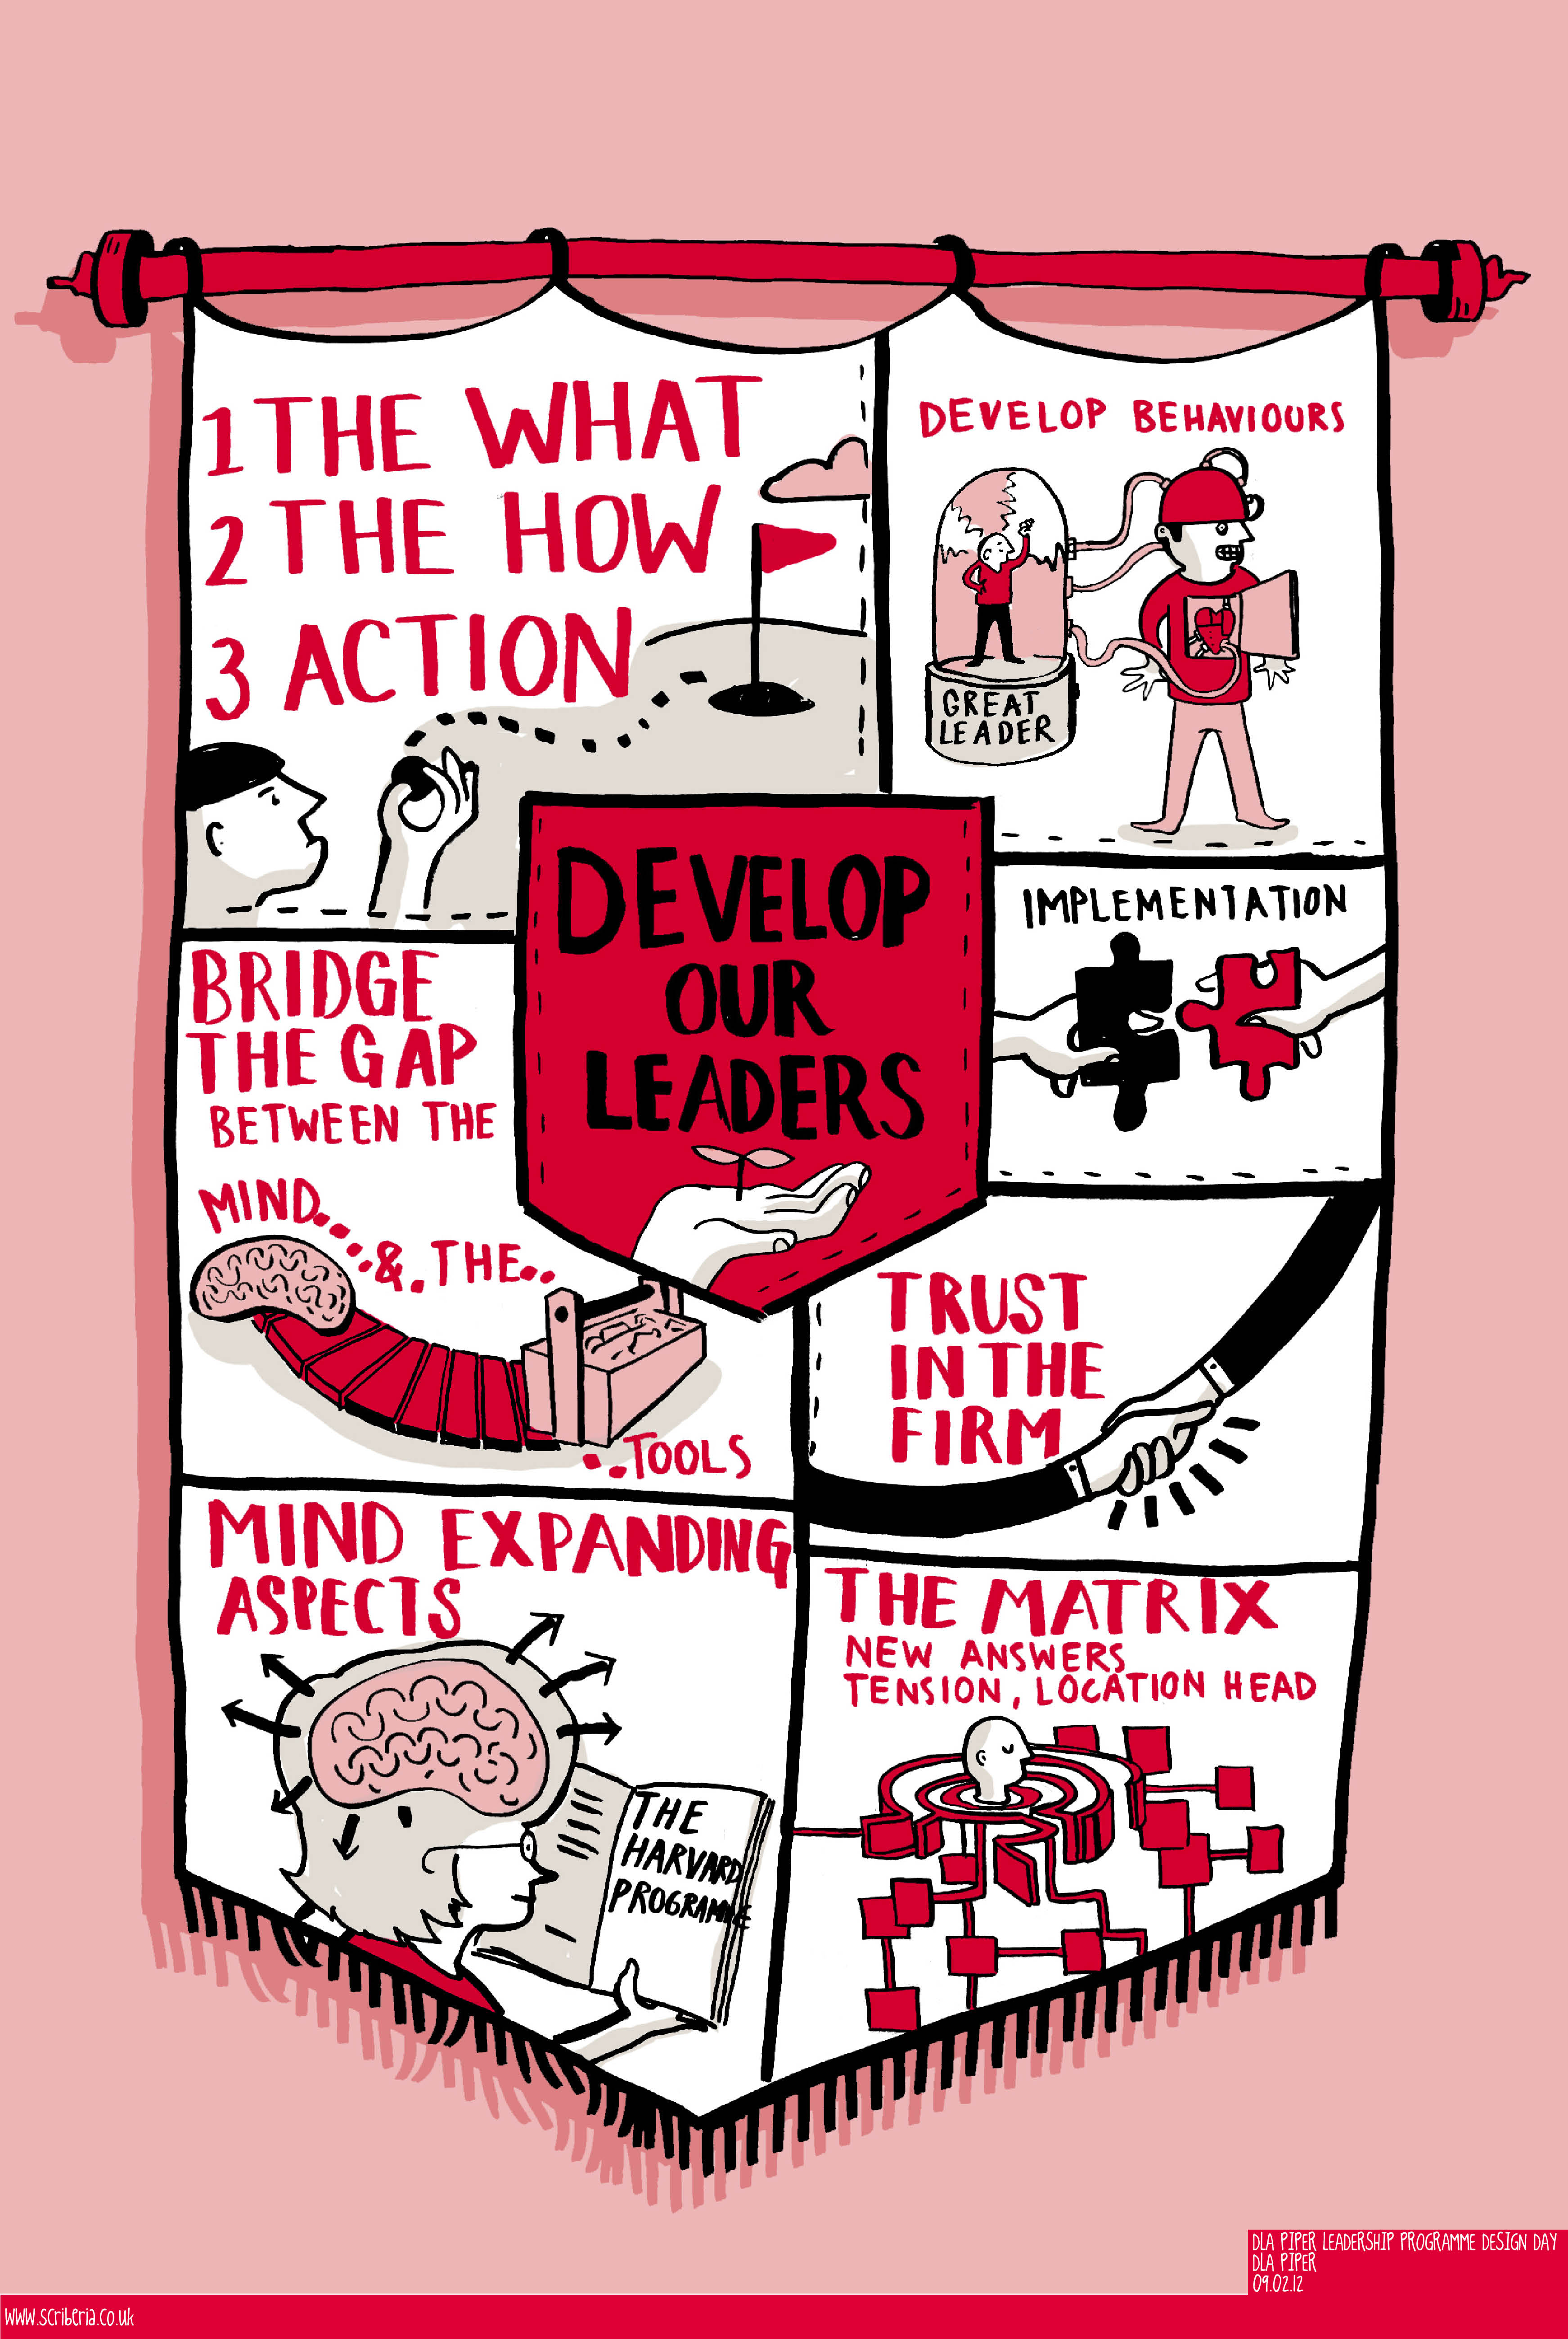 1 THE WHAT
2 THE HOW
3 ACTION
DEVELOP BEHAVIOURS
GREAT
LEADER
DEVELOP
OUR
LEADERS
IMPLEMENTATION
BRIDGE
THE GAP
BETWEEN THE
MIND...
& . THE..
..TOOLS
TRUST
IN THE
FIRM
MIND EXPANDING
ASPECTS
THE
HARVARD
PROGRAMME
THE MATRIX
NEW ANSWERS
TENSION, LOCATION HEAD
DLA PIPER LEADERSHIP PROGRAMME DESIGN DAY
DLA PIPER
09.02.12
www.scriberia.co.uk